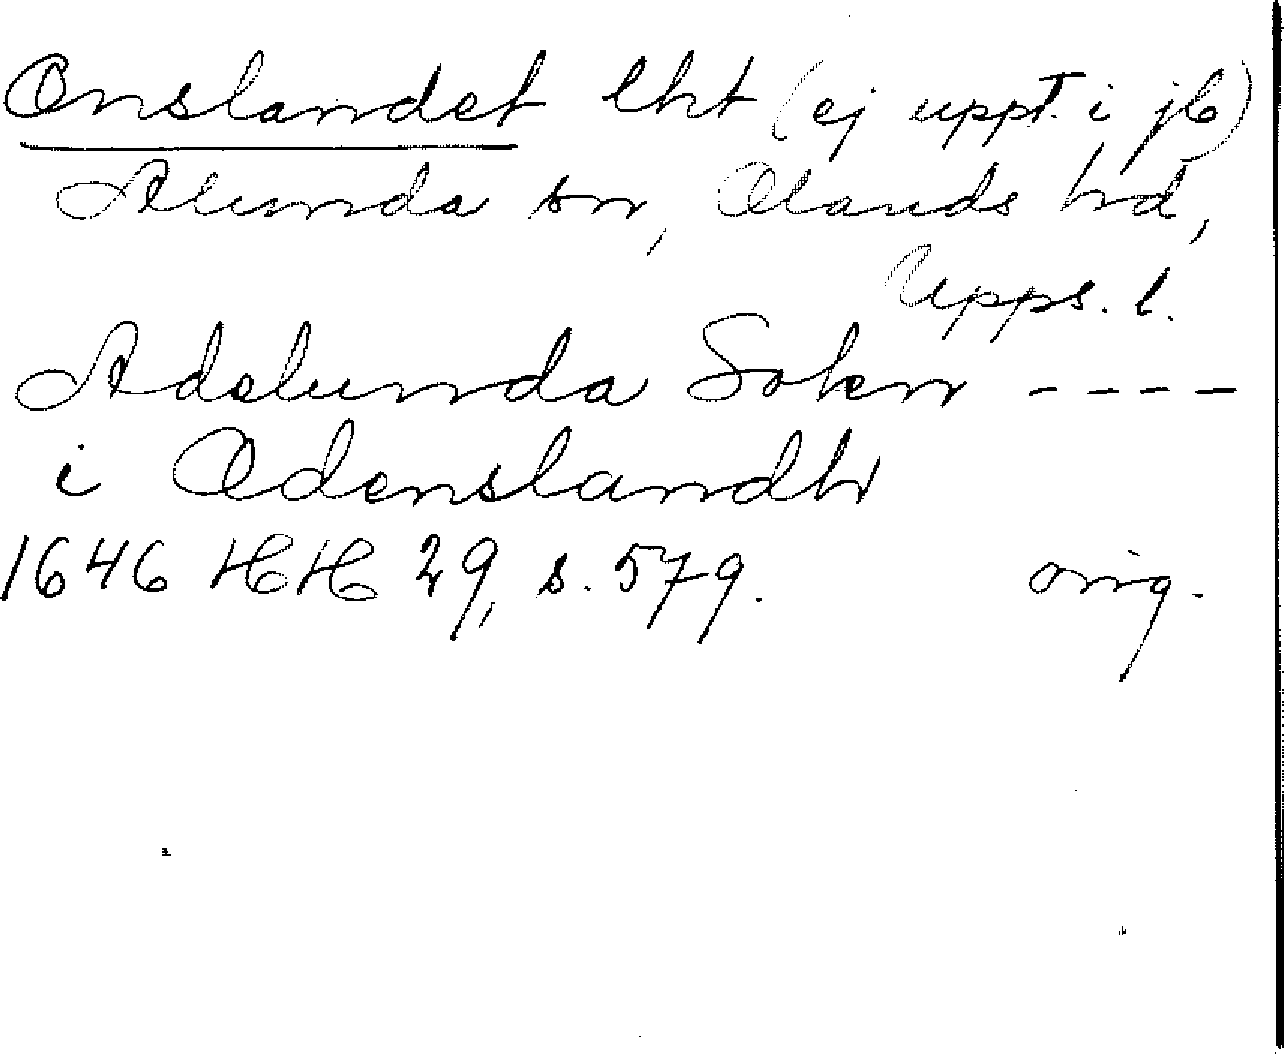 Onslandet lht (ej uppt. i jb)
Alunda sn, Olands hd,
Upps. l.
Adelunda Soken ----
i Odenslandh
1646 HH 29, s. 579. orig.